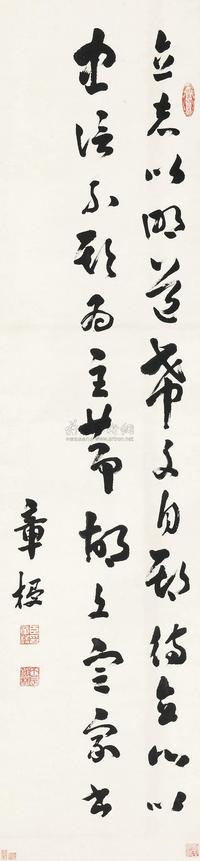 立志以明道希文自期待立心以
忠信不欺為主本胡文定家書
章梫